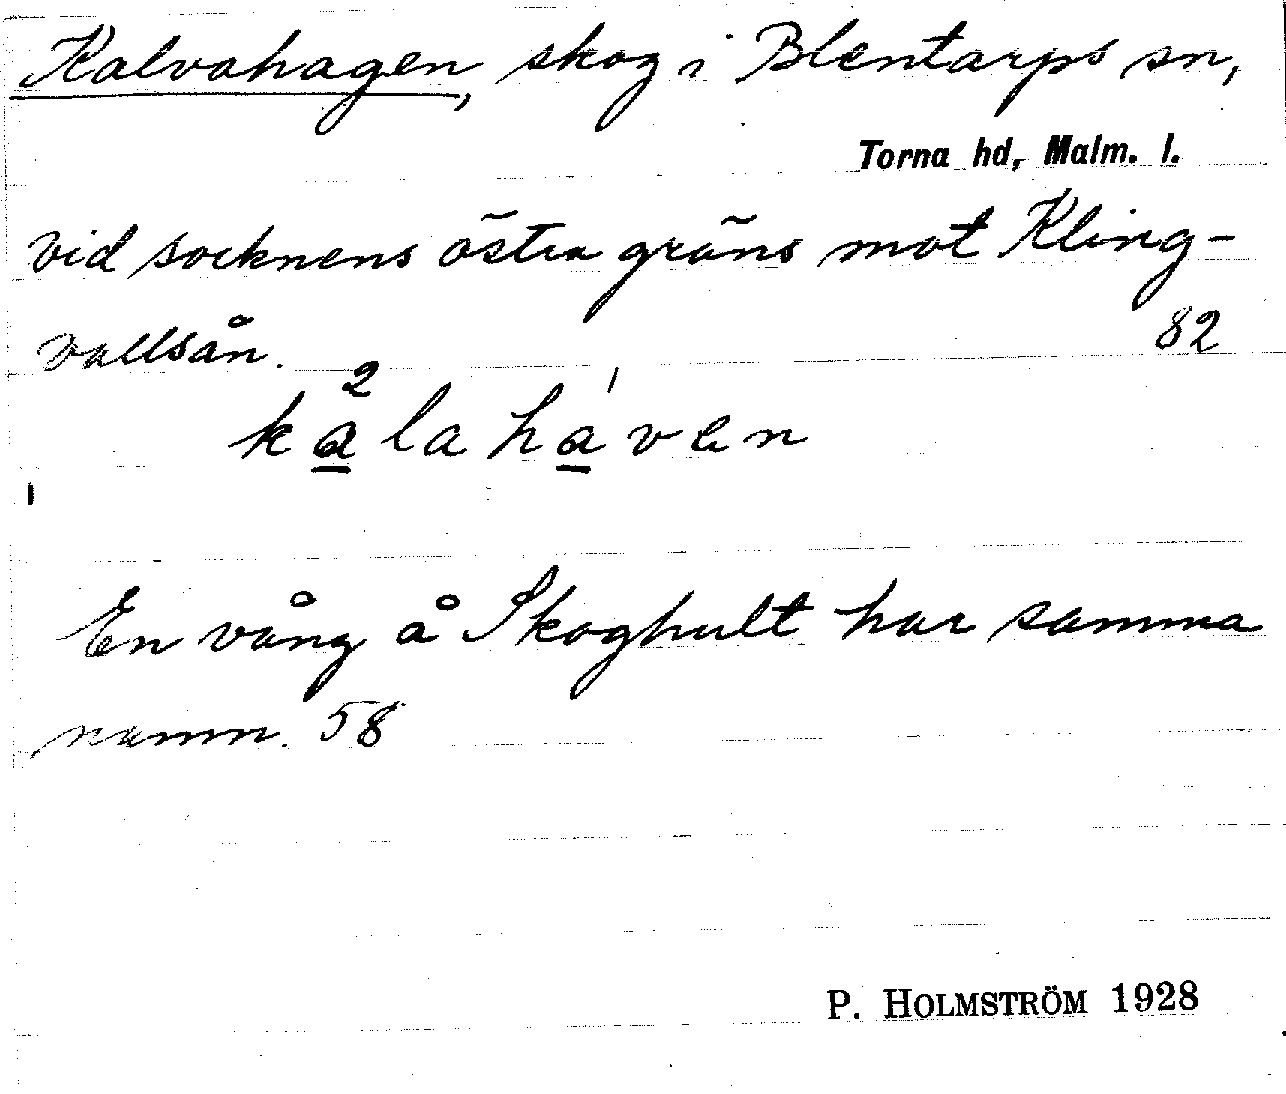 Kalvahagen, skog i Blentarps sn,
Torna hd, Malm. l.
vid socknens östra gräns mot Kling-
vallsån. 82
kala haven
En vång å Skoghult har samma
namn. 58
P. HOLMSTRÖM 1928